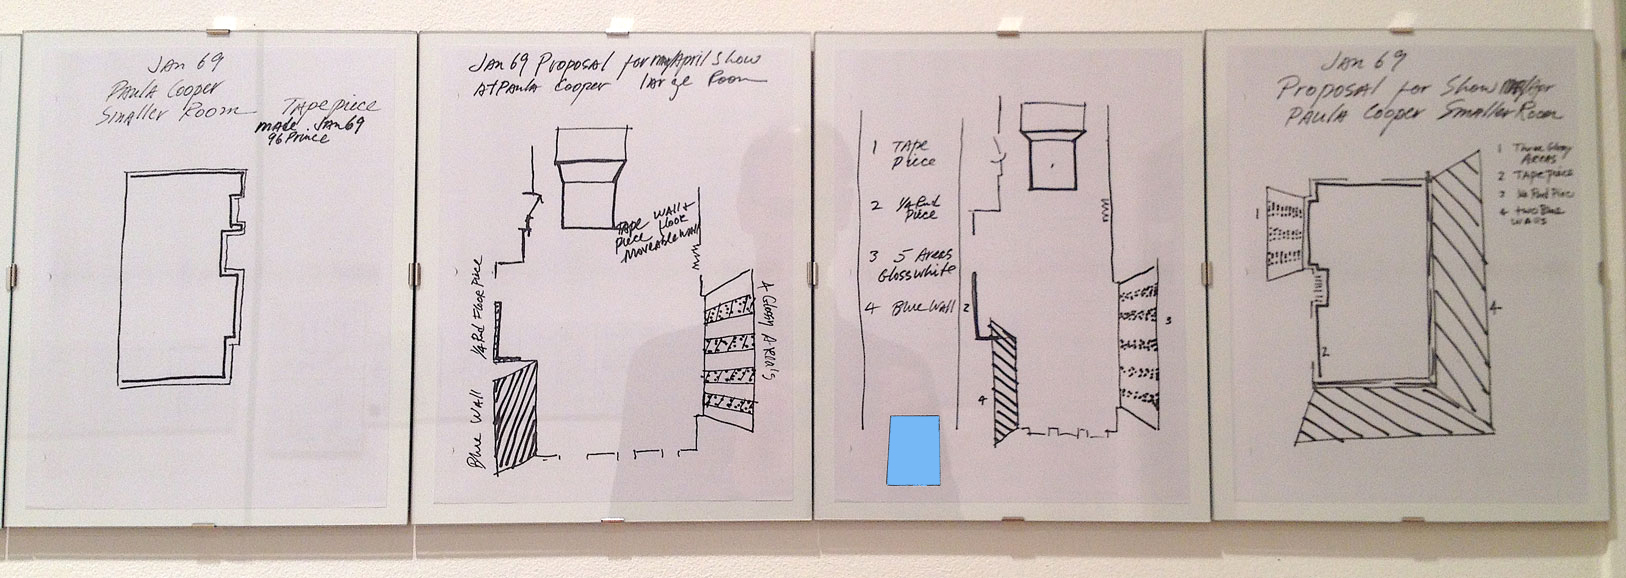 Jan 69
Paula Cooper
Smaller Room
Tape piece
made Jan 69
96 Prince
Jan 69 Proposal for my April Show
At Paula Cooper large Room
Tape Wall +
piece Hook
Moveable Wall
1/4 Rnd Floor Piece
Blue Wall
4 Glossy Areas
1 Tape
piece
2 1/4 Rnd
piece
3 5 Areas
Gloss White
4 Blue Wall
2
3
4
Jan 69
Proposal for Show for
Paula Cooper Smaller Room
1 Three Glossy
Areas
2 Tape piece
3 1/4 Rnd Piece
4 two Blue
Walls
1
2
4